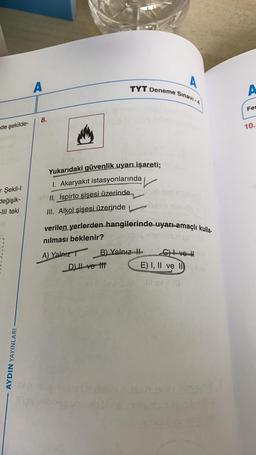 A
A
A
TYT Deneme Sınavı - 4
8.
nde şekilde-
Fen
10.
Yukarıdaki güvenlik uyarı işareti;
r Şekil-I
değişik-
-III teki
I. Akaryakıt istasyonlarında
II. İspirto şişesi üzerinde
III. Alkol şişesi üzerinde
verilen yerlerden hangilerinde uyarı amaçlı kulla-
nılması beklenir?
A) Yalnız I
B) Yalnız II
C) I ve II
D) II ve III
E) I, II ve III
AYDIN YAYINLARI